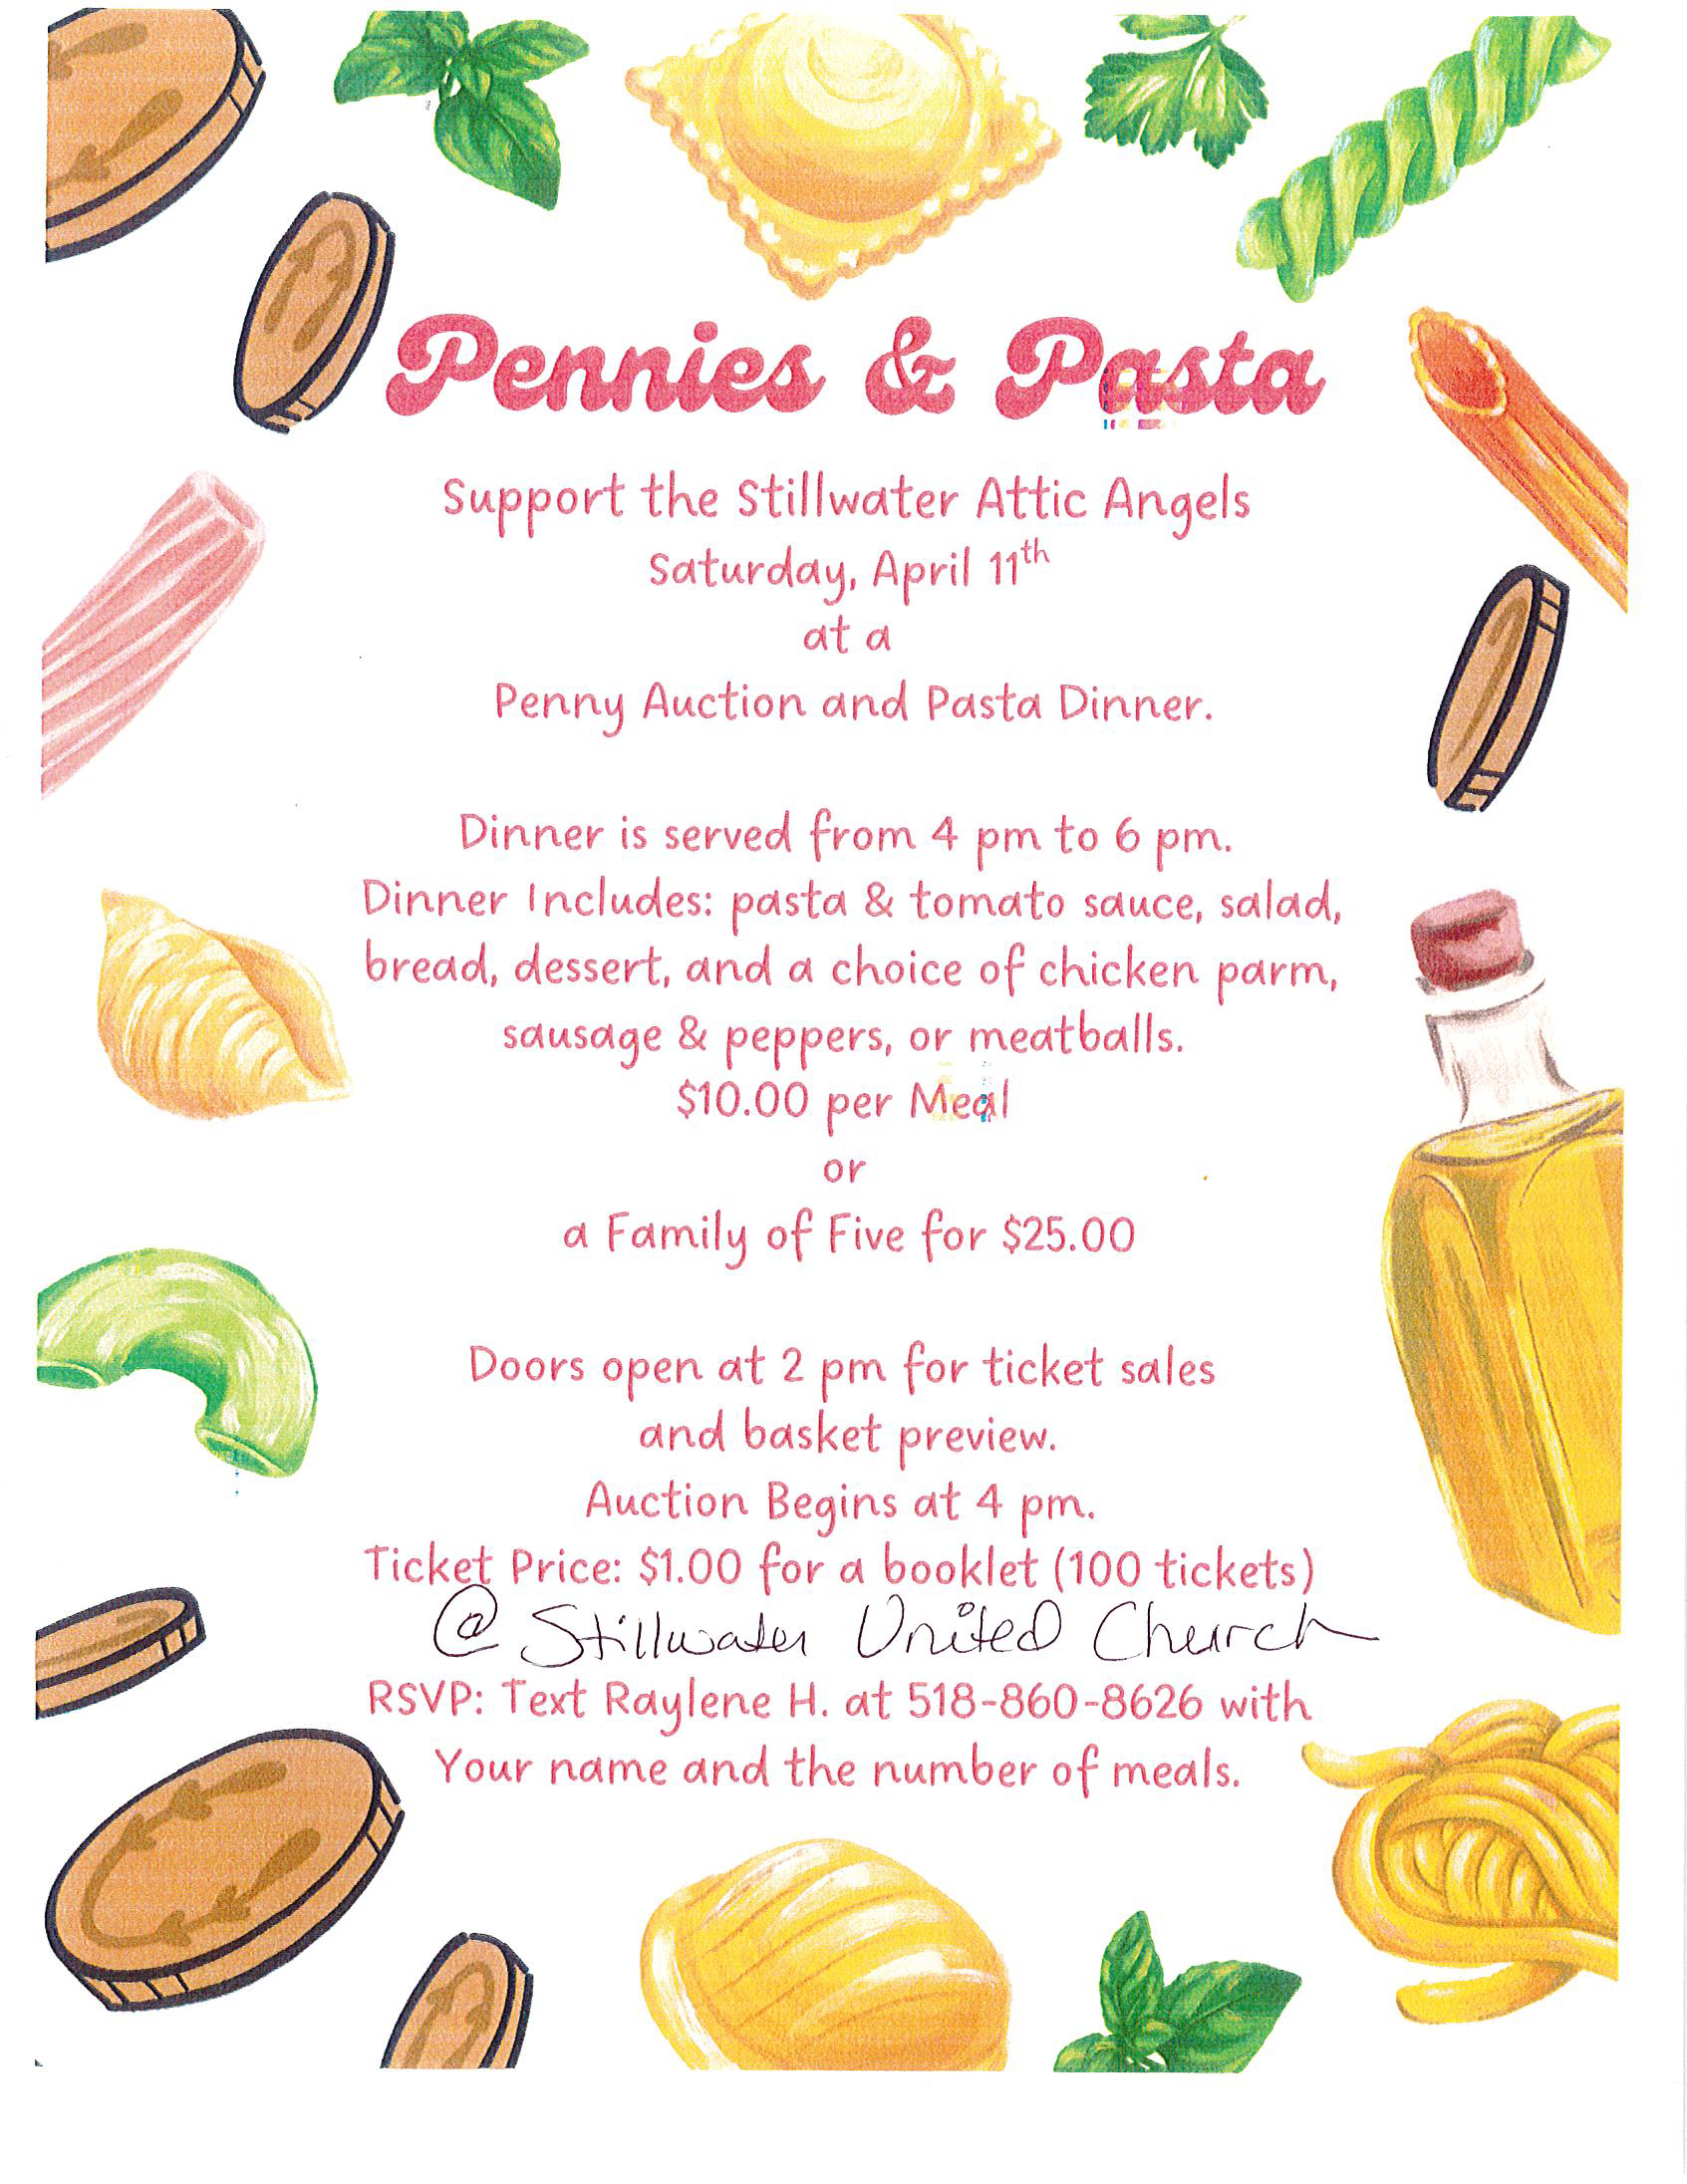 Pennies & Pasta
Support the Stillwater Attic Angels
Saturday, April 11th
at a
Penny Auction and Pasta Dinner.
Dinner is served from 4 pm to 6 pm.
Dinner Includes: pasta & tomato sauce, salad,
bread, dessert, and a choice of chicken parm,
sausage & peppers, or meatballs.
$10.00 per Meal
or
a Family of Five for $25.00
Doors open at 2 pm for ticket sales
and basket preview.
Auction Begins at 4 pm.
Ticket Price: $1.00 for a booklet (100 tickets)
@ Stillwater United Church
RSVP: Text Raylene H. at 518-860-8626 with
Your name and the number of meals.